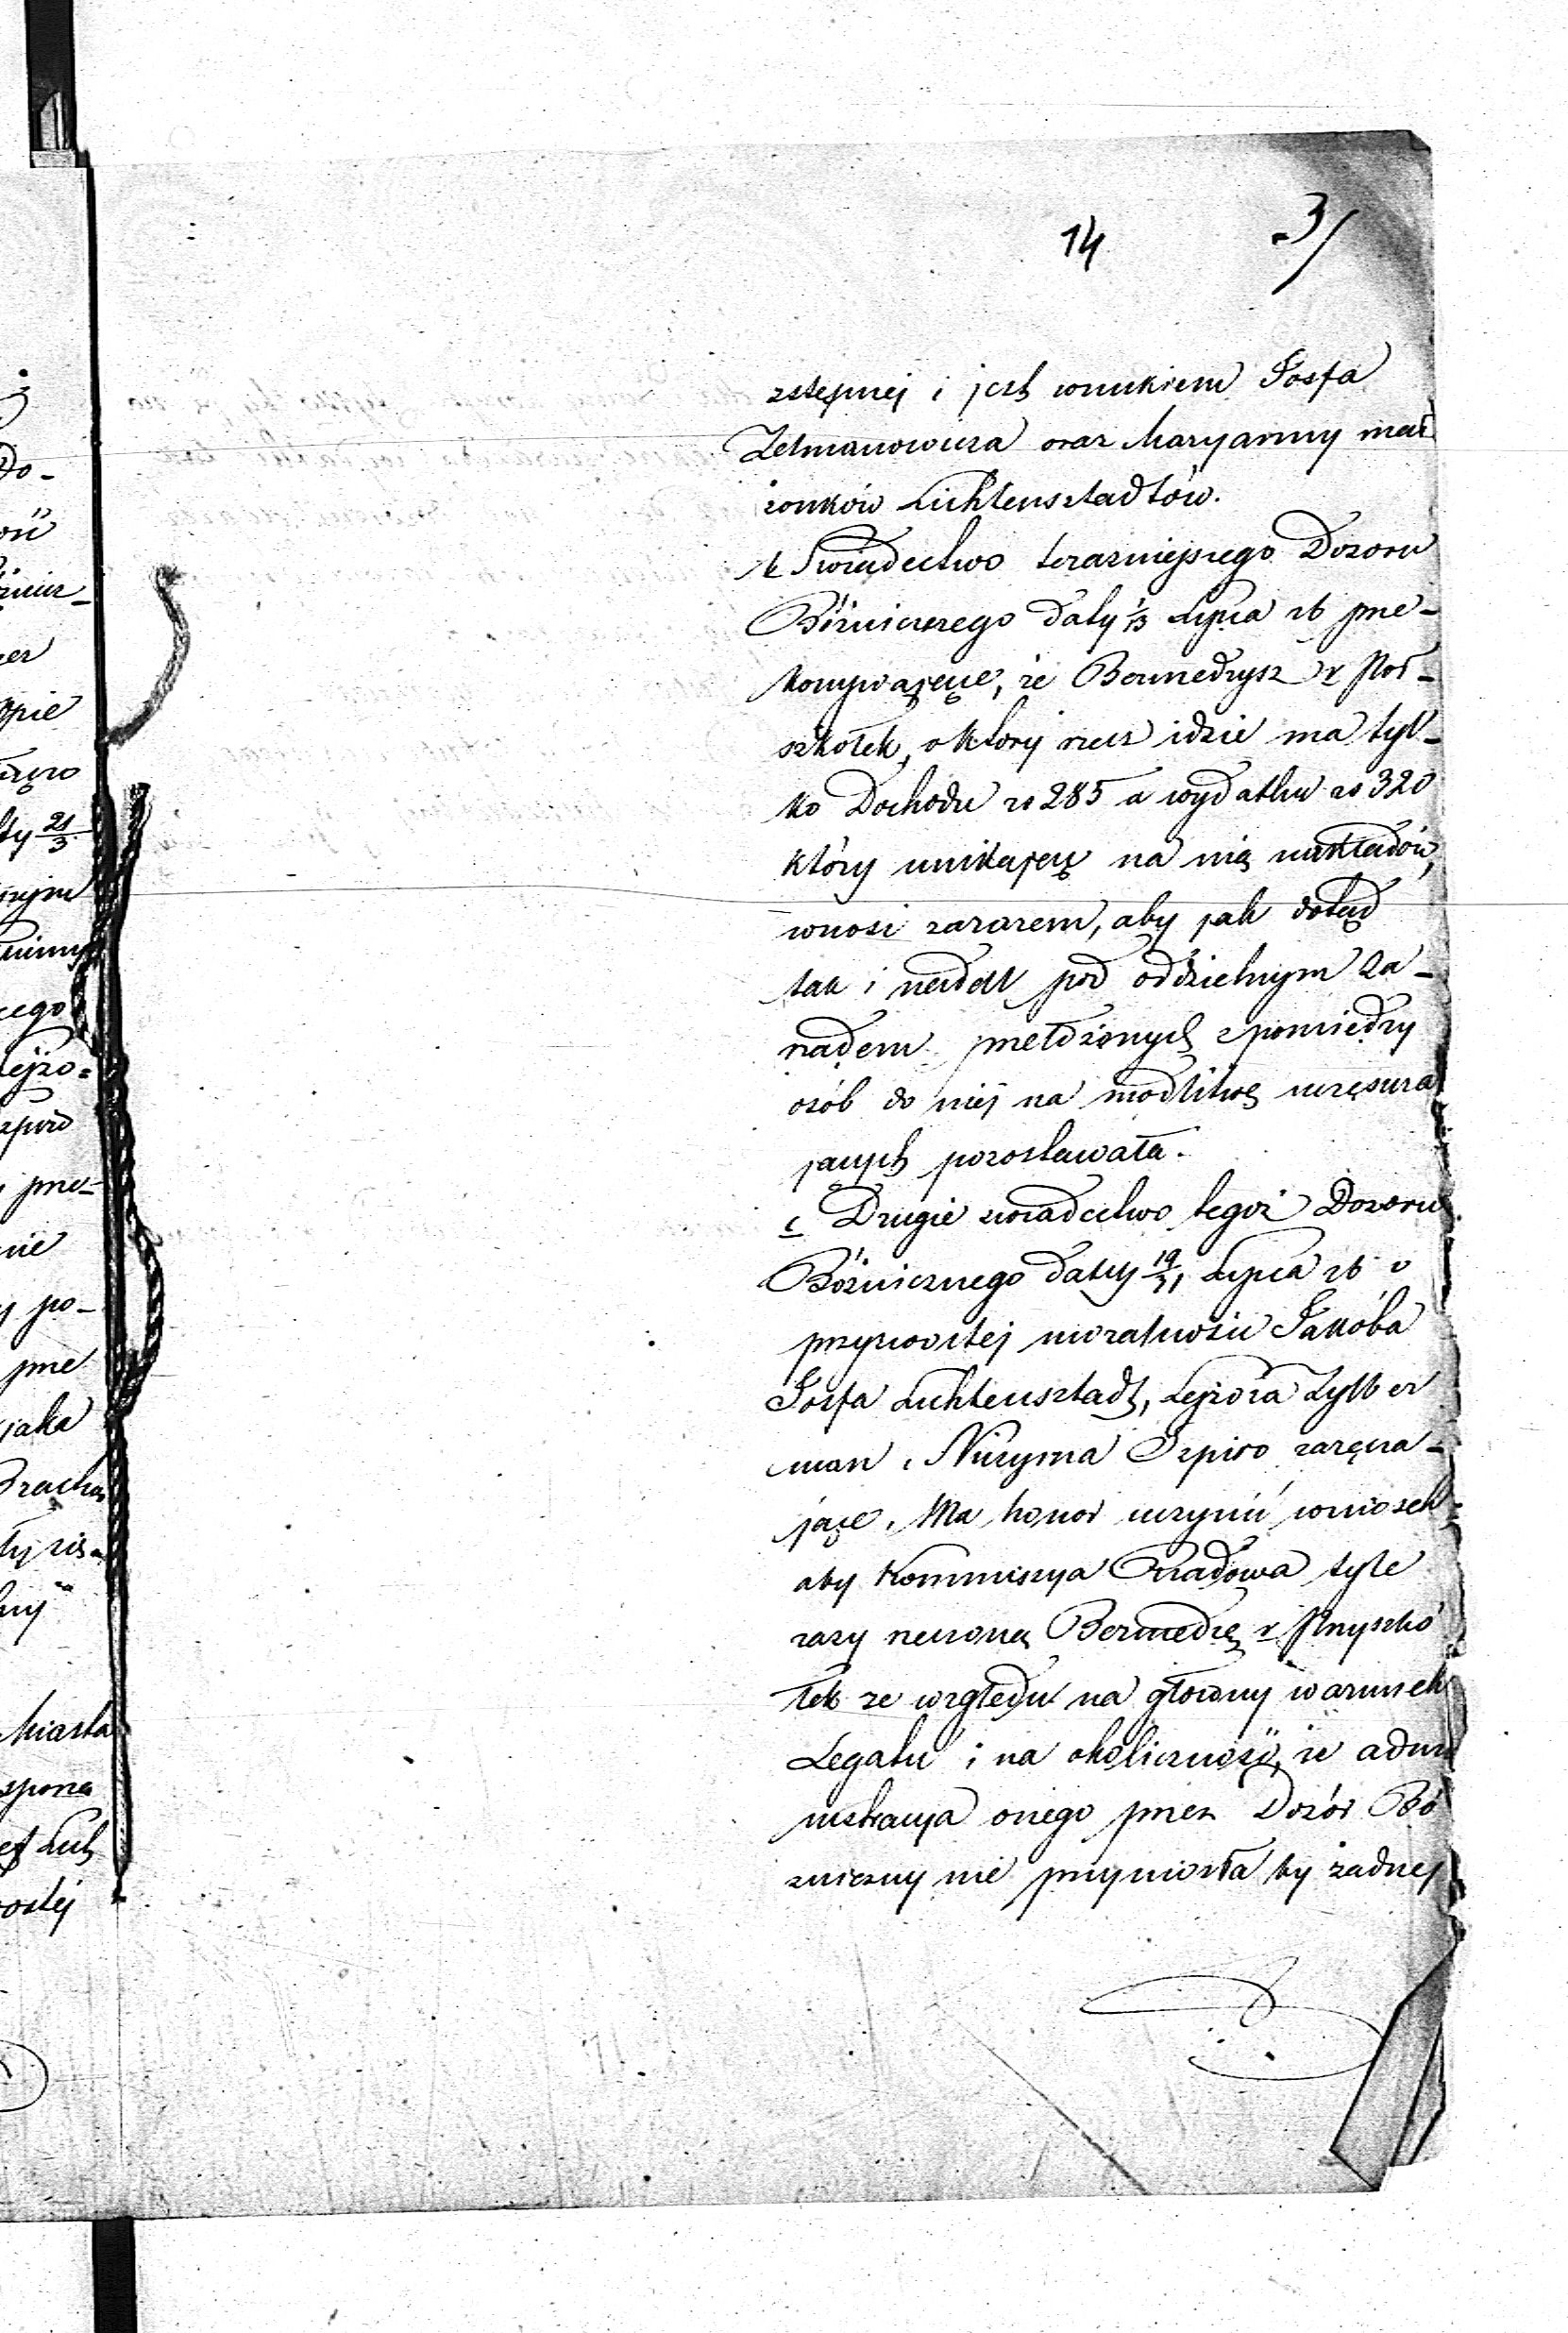 14 3/
zstępnej i jest wnukiem Josfa
Zelmanowicza oraz Maryanny mał
żonków Lichtensztadtów.
b Świadectwo teraźniejszego Dozoru
Bóżniczego daty 1/13 Lipca rb prze-
konywające, że Bermedrysz v
szkołek, o który rzecz idzie ma tyl-
ko Dochodu zł 285 a wydatku zł 320
który unikając na nią nakładów,
wnosi zarazem, aby jak dotąd
tak i nadal pod oddzielnym Za-
rządem przełożonych z pomiędzy
osób do niéj na modlitwę uczęszcza
jących pozostawała.
c Drugie świadectwo tegoż Dozoru
Bóżnicznego daty 19/31 Lipca rb o
przyzwoitej moralności Jakóba
Josfa Lichtensztadt, Lejzora Zylber
man i Szpiro zaręcza-
jące. Ma honor uczynić wniosek
aby Kommissya Rządowa tyle
razy rzeczoną Bermedrę v Przyszkó
łek ze względu na główny warunek
Legatu i na okoliczność, że admi
nistracya onego przez Dozór Bó
żniczny nie przyniosła by żadnej
Do-
21/3
cego
prze-
nie
po-
prze
jaka
Miasta